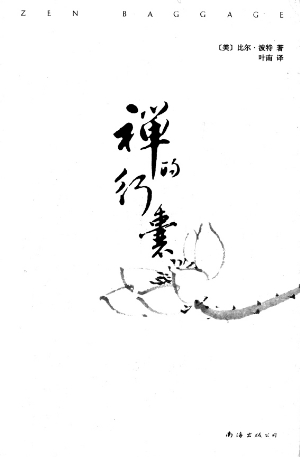 ZEN BAGGAGE
〔美〕比尔·波特 著
叶南 译
禅的行囊
南海出版公司